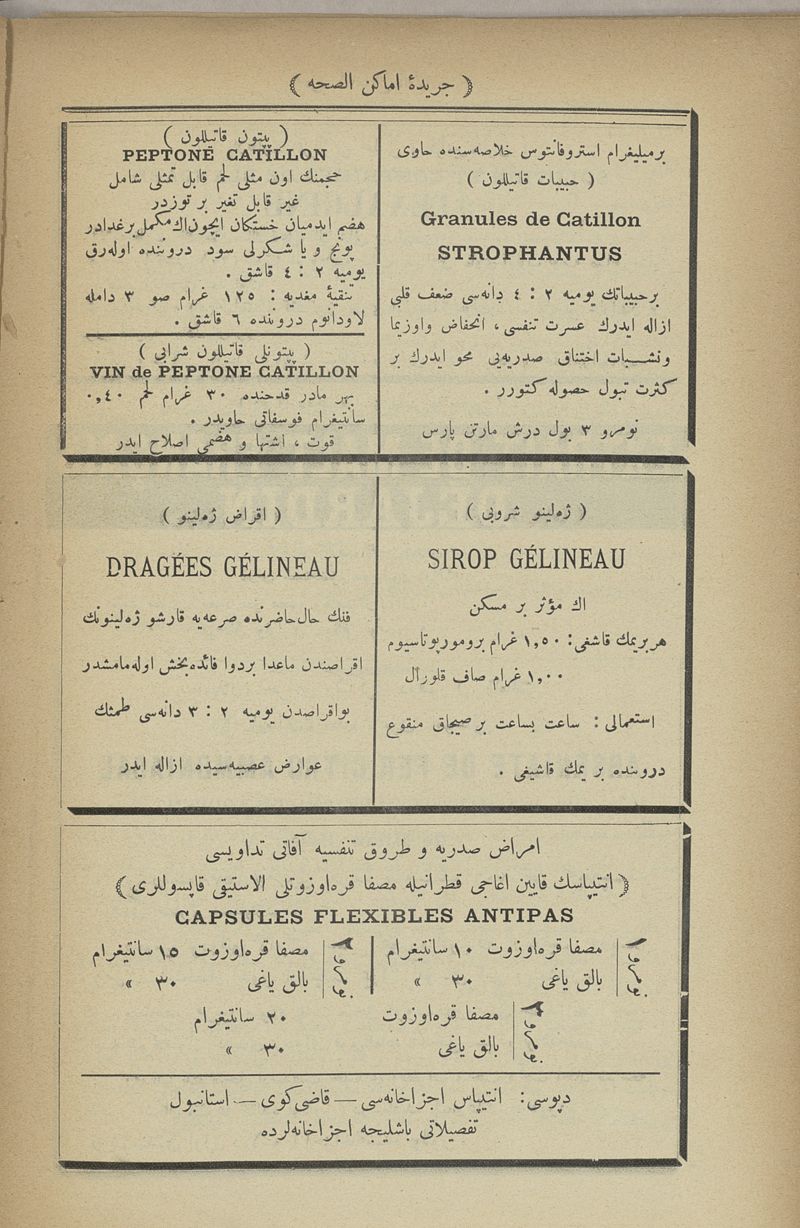 ﴿ جریدۀ اماكن الصحه ﴾
برمیلیغرام استروفانتوس خلاصه‌سنده حاوی
( حبیبات قاتیللون )
Granules de Catillon
STROPHANTUS
برحبیباتك یومیه ٢ : ٤ دانه‌سی ضعف قلبی
ازاله ایدرك عسرت تنفسی، انخفاض واوزیما
وتشبات اختناق صدریه‌یی محو ایدرك بر
كثرت تبول حصوله كتورر .
نومرو ٣ بول درش مارتن پارس
( پپتون قاتیللون )
PEPTONE CATILLON
حجمنك اون مثلی لحم قابل تمثلی شامل
غیر قابل تغیر بر توزدر
هضم ایدمیان خستكان ایچون اك مكمل برغدادر
پونج و یا شكرلی سود دروننده اوله‌رق
یومیه ٢ : ٤ قاشق .
تنقیۀ مغدیه : ١٢٥ غرام صو ٣ دامله
لاودانوم دروننده ٦ قاشق .
( پپتونلی قاتیللون شرابی )
VIN de PEPTONE CATILLON
بهر مادر قدحنده ٣٠ غرام لحم ٠,٤٠
سانتیغرام فوسفاتی حاویدر .
قوت ، اشتها و هضمی اصلاح ایدر
( ژه‌لینو شروبی )
SIROP GÉLINEAU
اك مؤثر بر مسكن
هربریمك قاشقی: ١,٥٠ غرام بروموریوتاسیوم
١,٠٠ غرام صاف قلورآل
استعمالی : ساعت بساعت بر صیجاق منقوع
دروننده بر یمك قاشیغی .
( اقراض ژه‌لینو )
DRAGÉES GÉLINEAU
فنك حال حاضرنده صرعه‌یه قارشو ژه‌لینونك
اقراصندن ماعدا بردوا فائده‌بخش اوله‌مامشدر
بواقراصدن یومیه ٢ : ٣ دانه‌سی طمثك
عوارض عصبیه‌سیده ازاله ایدر
امراض صدریه و طروق تنفسیه آفاتی تداویسی
﴿ انتیپاسك قایین اغاجی قطرانیله مصفا قره‌اوزوتلی الاستیقی قاپسوللری ﴾
CAPSULES FLEXIBLES ANTIPAS
نومرو ١ مصفا قره‌اوزوت ١٠ سانتیغرام
بالق یاغی ٣٠ »
نومرو ٢ مصفا قره‌اوزوت ١٥ سانتیغرام
بالق یاغی ٣٠ »
نومرو ٣ مصفا قره‌اوزوت ٢٠ سانتیغرام
بالق یاغی ٣٠ »
دپوسی: انتیپاس اجزاخانه‌سی — قاضی‌كوی — استانبول
تفصیلاتی باشلیجه اجزاخانه‌لرده